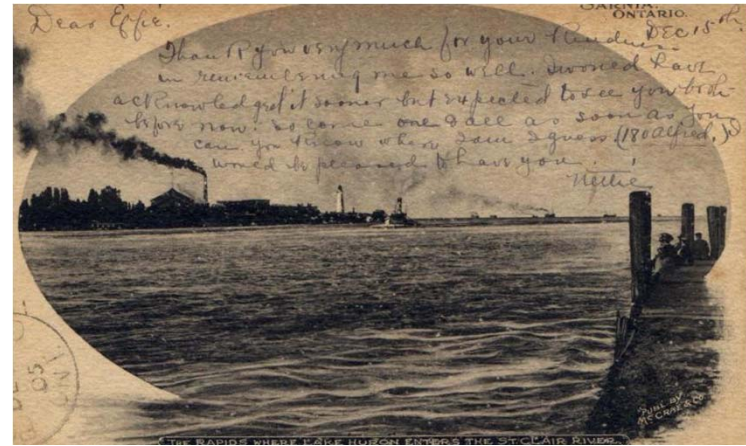 SARNIA.
ONTARIO.
Dear Effie.
DEC 15th.
Thank you very much for your kindness
in remembering me so well. I would have
acknowledged it sooner but expected to see you both
before now. So come one & all as soon as you
can you know where I am I guess (180 Alfred.)
would be pleased to have you.
Nellie
05
PUBL. BY
McCRAE & CO
THE RAPIDS WHERE LAKE HURON ENTERS THE ST CLAIR RIVER.